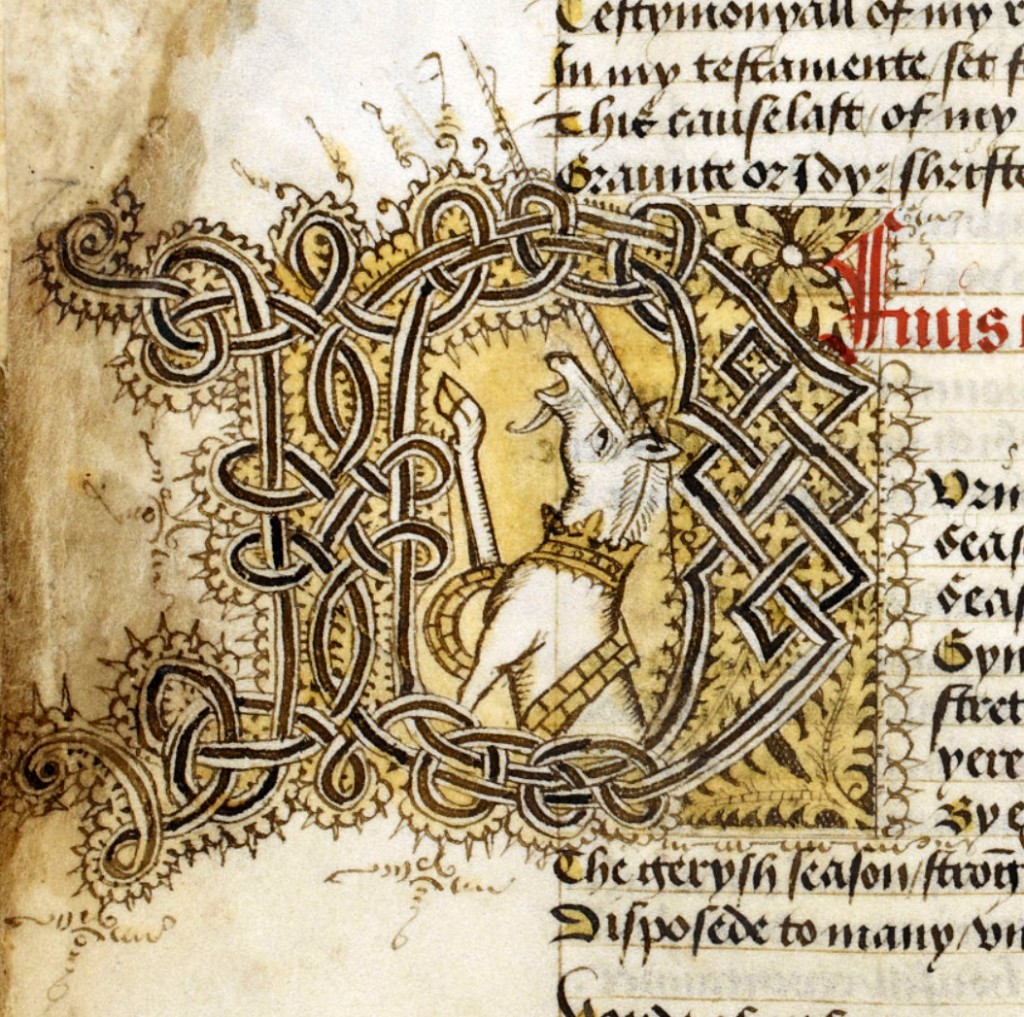 Testymonyall of my r
In my testamente/set f
This cause last/ of my
Graunte or I dye: shrifte
D
Vryn
Seas
Seas
Gyn
stret
yere
By e
The gerysh season/ strong
Disposede to many/ vn